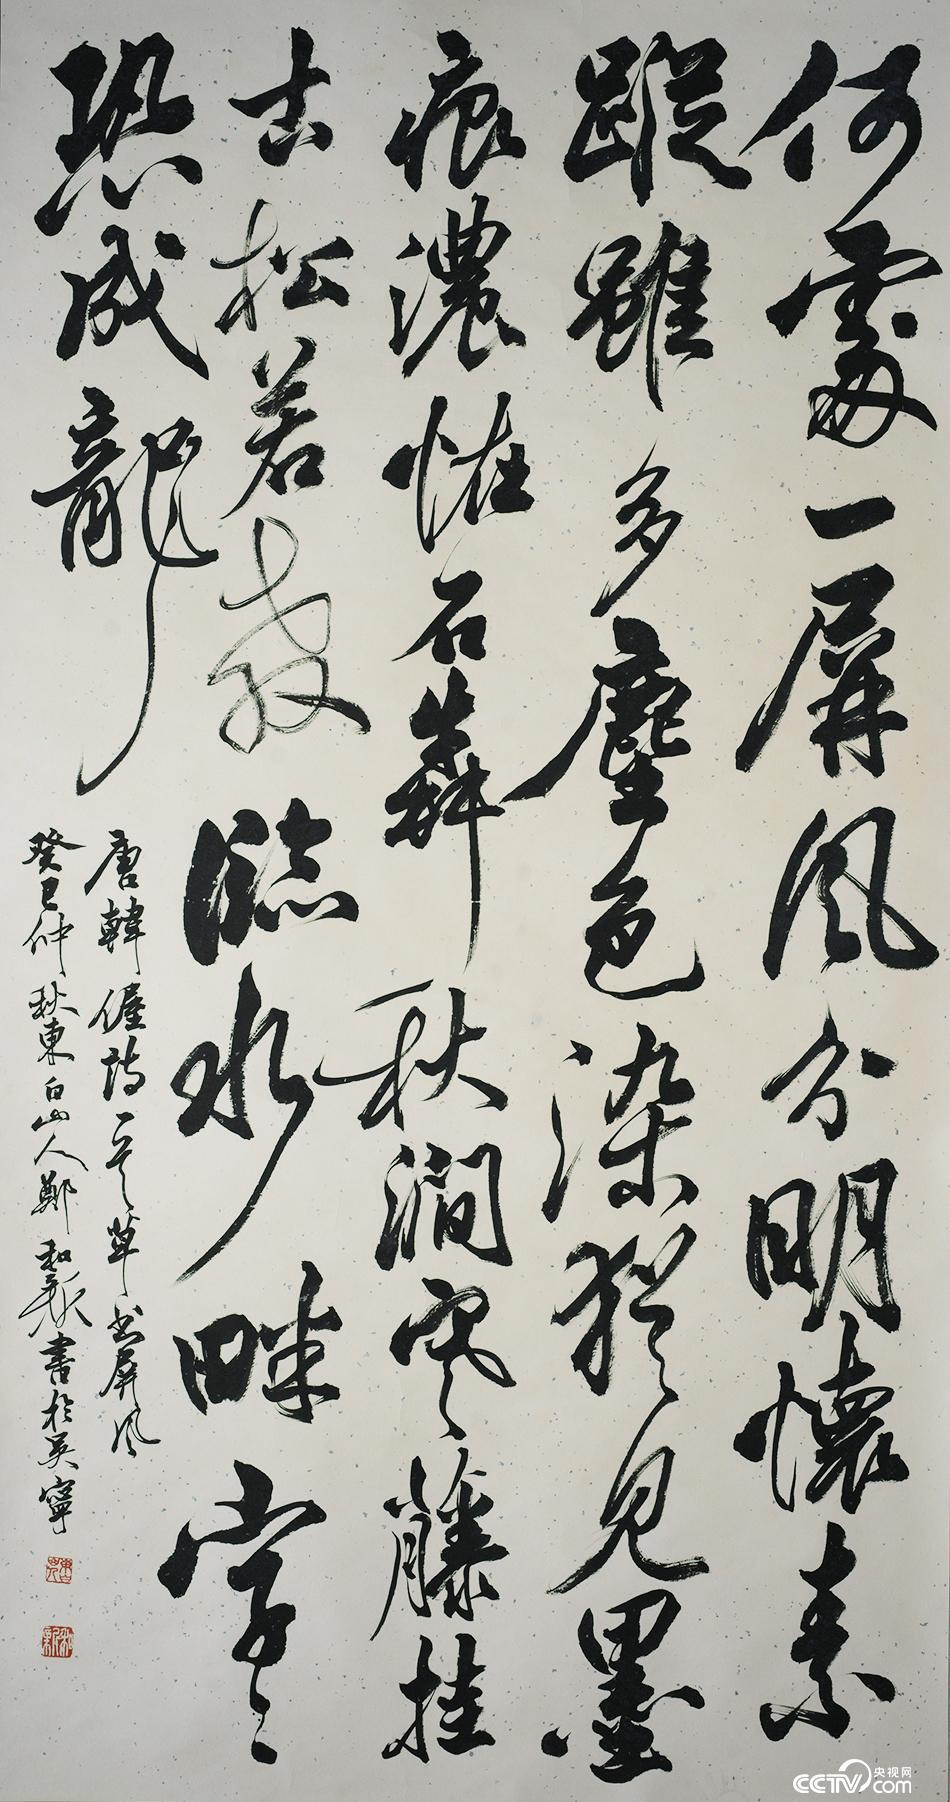 何處一屏風分明懷素
蹤雖多塵色染猶見墨
痕濃怪石犇秋澗寒藤挂
古松若教臨水畔字〻
恐成龍
唐韓偓詩一首草书屏风
癸巳仲秋東白山人鄭和新書於吳寧
央视网
CCTV.com